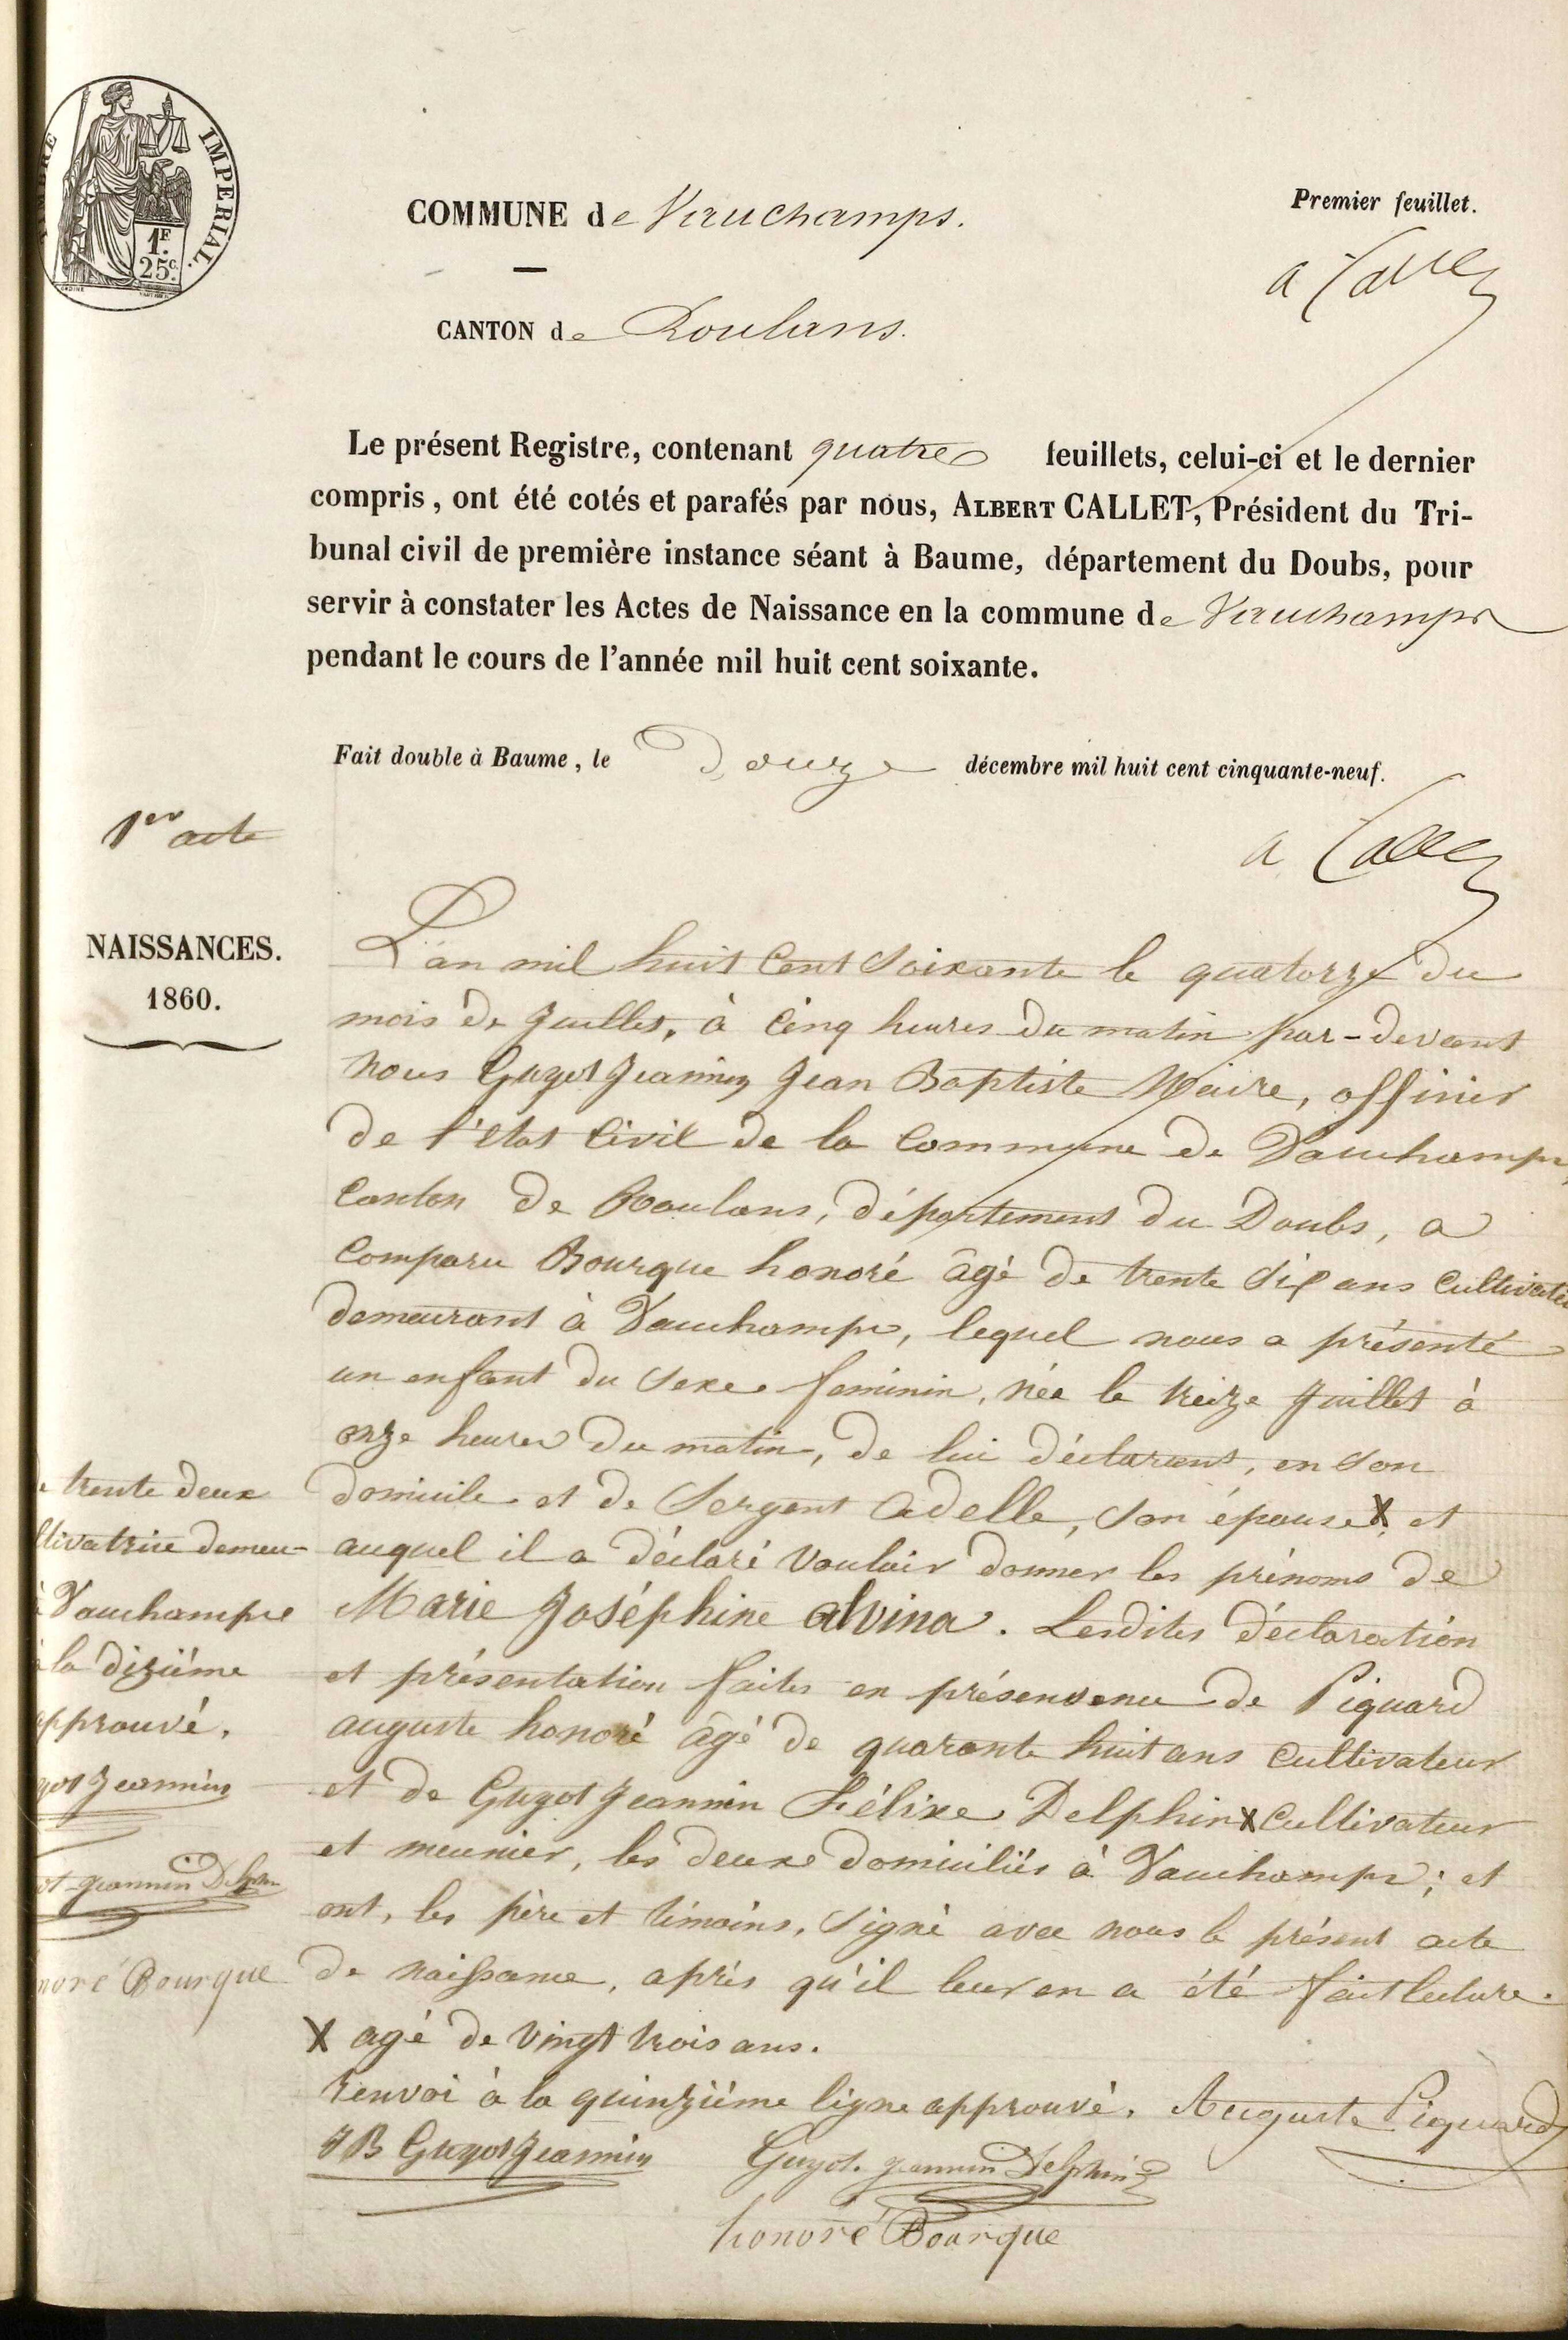 IMPERIAL.
1F
25c.
COMMUNE de Vauchamps.
Premier feuillet.
a Callet
CANTON de Roulans.
Le présent Registre, contenant quatre feuillets, celui-ci et le dernier
compris, ont été cotés et parafés par nous, ALBERT CALLET, Président du Tri-
bunal civil de première instance séant à Baume, département du Doubs, pour
servir à constater les Actes de Naissance en la commune de Vauchamps
pendant le cours de l'année mil huit cent soixante.
Fait double à Baume, le Douze décembre mil huit cent cinquante-neuf.
a Callet
1er acte
NAISSANCES.
1860.
L'an mil huit Cent Soixante le quatorze du
mois de Juillet, à Cinq heures du matin par-devant
nous Guyot Jeannin Jean Baptiste Maire, officier
de l'état Civil de la Commune de Vauchamps,
Canton de Roulans, département du Doubs, a
Comparu Bourque honoré âgé de trente Six ans Cultivateur
demeurant à Vauchamps, lequel nous a présenté
un enfant du Sexe féminin, née le treize Juillet à
onze heures du matin, de lui déclarant, en Son
domicile et de Sergent Adelle, Son épouse X et
auquel il a déclaré Vouloir donner les prénoms de
Marie Joséphine alvina. Lesdites déclaration
et présentation faites en présencence de Piquard
auguste honoré âgé de quarante huit ans Cultivateur
et de Guyot Jeannin Félixe Delphin X Cultivateur
et meunier, les deuxe domiciliés à Vauchamps; et
ont, les père et témoins, Signé avec nous le présent acte
de naissance, après qu'il leur en a été fait lecture.
X agé de Vingt trois ans.
renvoi à la quinzième ligne approuvé. Auguste Piquard
JB Guyot Jeannin Guyot-jeannin Delphin
honoré Bourque
trente deux
ltivatrice demeu-
à Vauchamps
à la dizième
approuvé.
yot Jeannin
ot-jeannin Delphin
noré Bourque